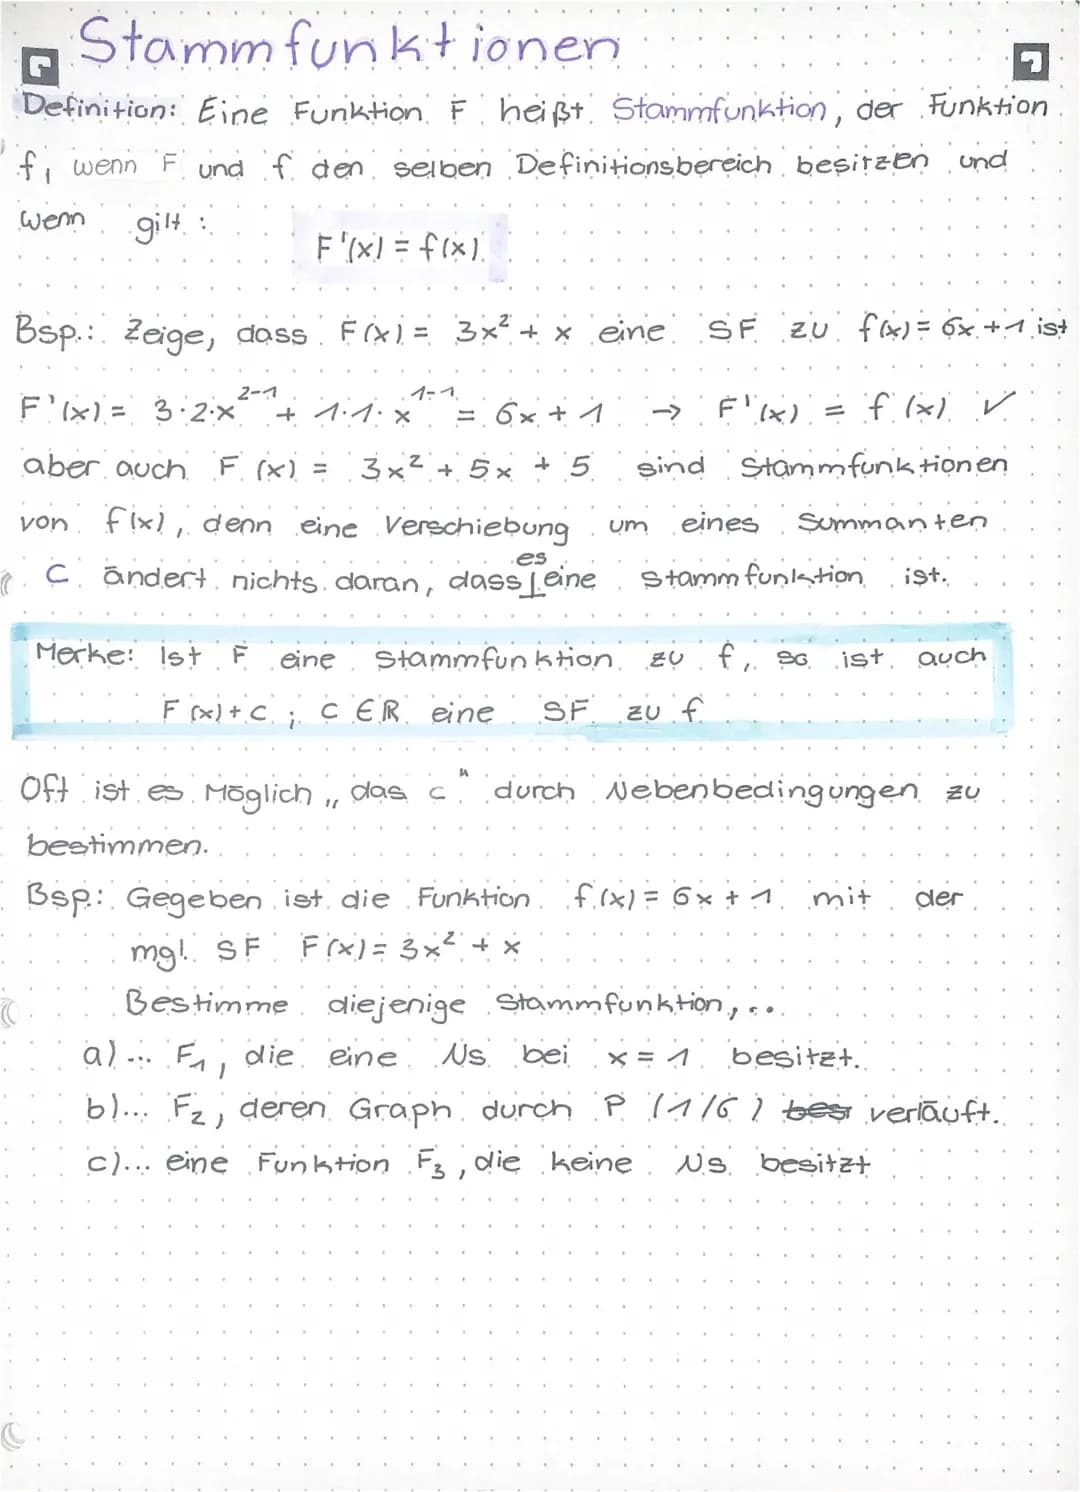 Stammfunktionen
Definition: Eine Funktion F heißt Stammfunktion, der Funktion
f, wenn F und f den selben Definitionsbereich besitzen und
wenn gilt:
F'(x) = f(x)
Bsp.: Zeige, dass F(x) = 3x² + x eine SF zu f(x) = 6x + 1 ist
F'(x) = 3·2·x²⁻¹ + 1·1·x¹⁻¹ = 6x + 1 → F'(x) = f(x) ✓
aber auch F(x) = 3x² + 5x + 5 sind Stammfunktionen
von f(x), denn eine Verschiebung um eines Summanten
C ändert nichts daran, dass es eine Stammfunktion ist.
Merke: Ist F eine Stammfunktion zu f, so ist auch
F(x) + C ; C ∈ ℝ eine SF zu f
Oft ist es Möglich „das c" durch Nebenbedingungen zu
bestimmen.
Bsp.: Gegeben ist die Funktion f(x) = 6x + 1 mit der
mgl. SF F(x) = 3x² + x
Bestimme diejenige Stammfunktion,...
a)... F₁, die eine Ns bei x = 1 besitzt.
b)... F₂, deren Graph durch P (1/6) bes verläuft.
c)... eine Funktion F₃, die keine Ns besitzt